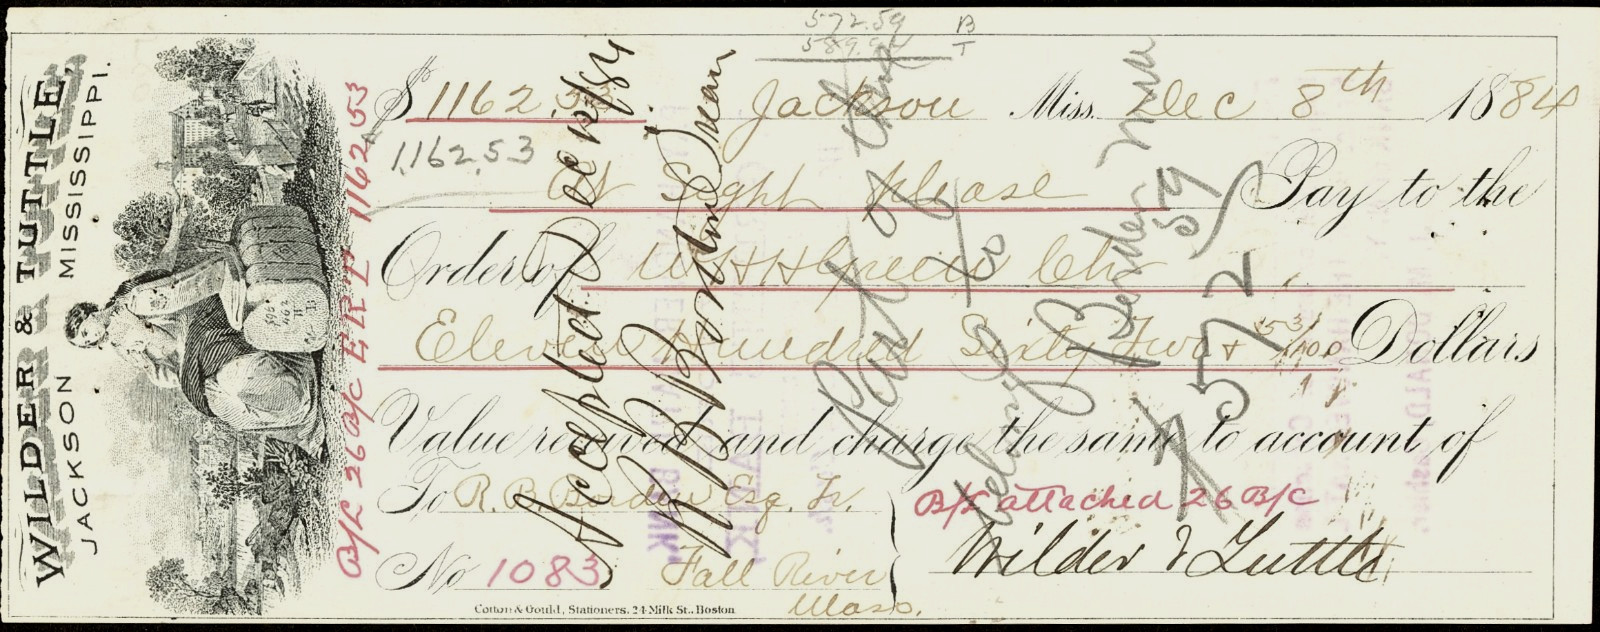 572.59 B
589.94 T
WILDER & TUTTLE,
JACKSON MISSISSIPPI.
B/L 26 B/C 1162 53
$ 1162.53 Jackson Miss. Dec 8th 1884
1,162.53
At Sight please Pay to the
Order of W H H Green Chr
Eleven Hundred Sixty Two & 53/100 Dollars
Value received and charge the same to account of
To R. B. Borden Esq. Tr.
Fall River
Mass.
No 1083
B/L attached 26 B/C
Wilder & Tuttle
Accepted Dec 12/84
R B Borden Treas
Part of this
to
Border
$572 59
Cotton & Gould, Stationers. 24 Milk St., Boston